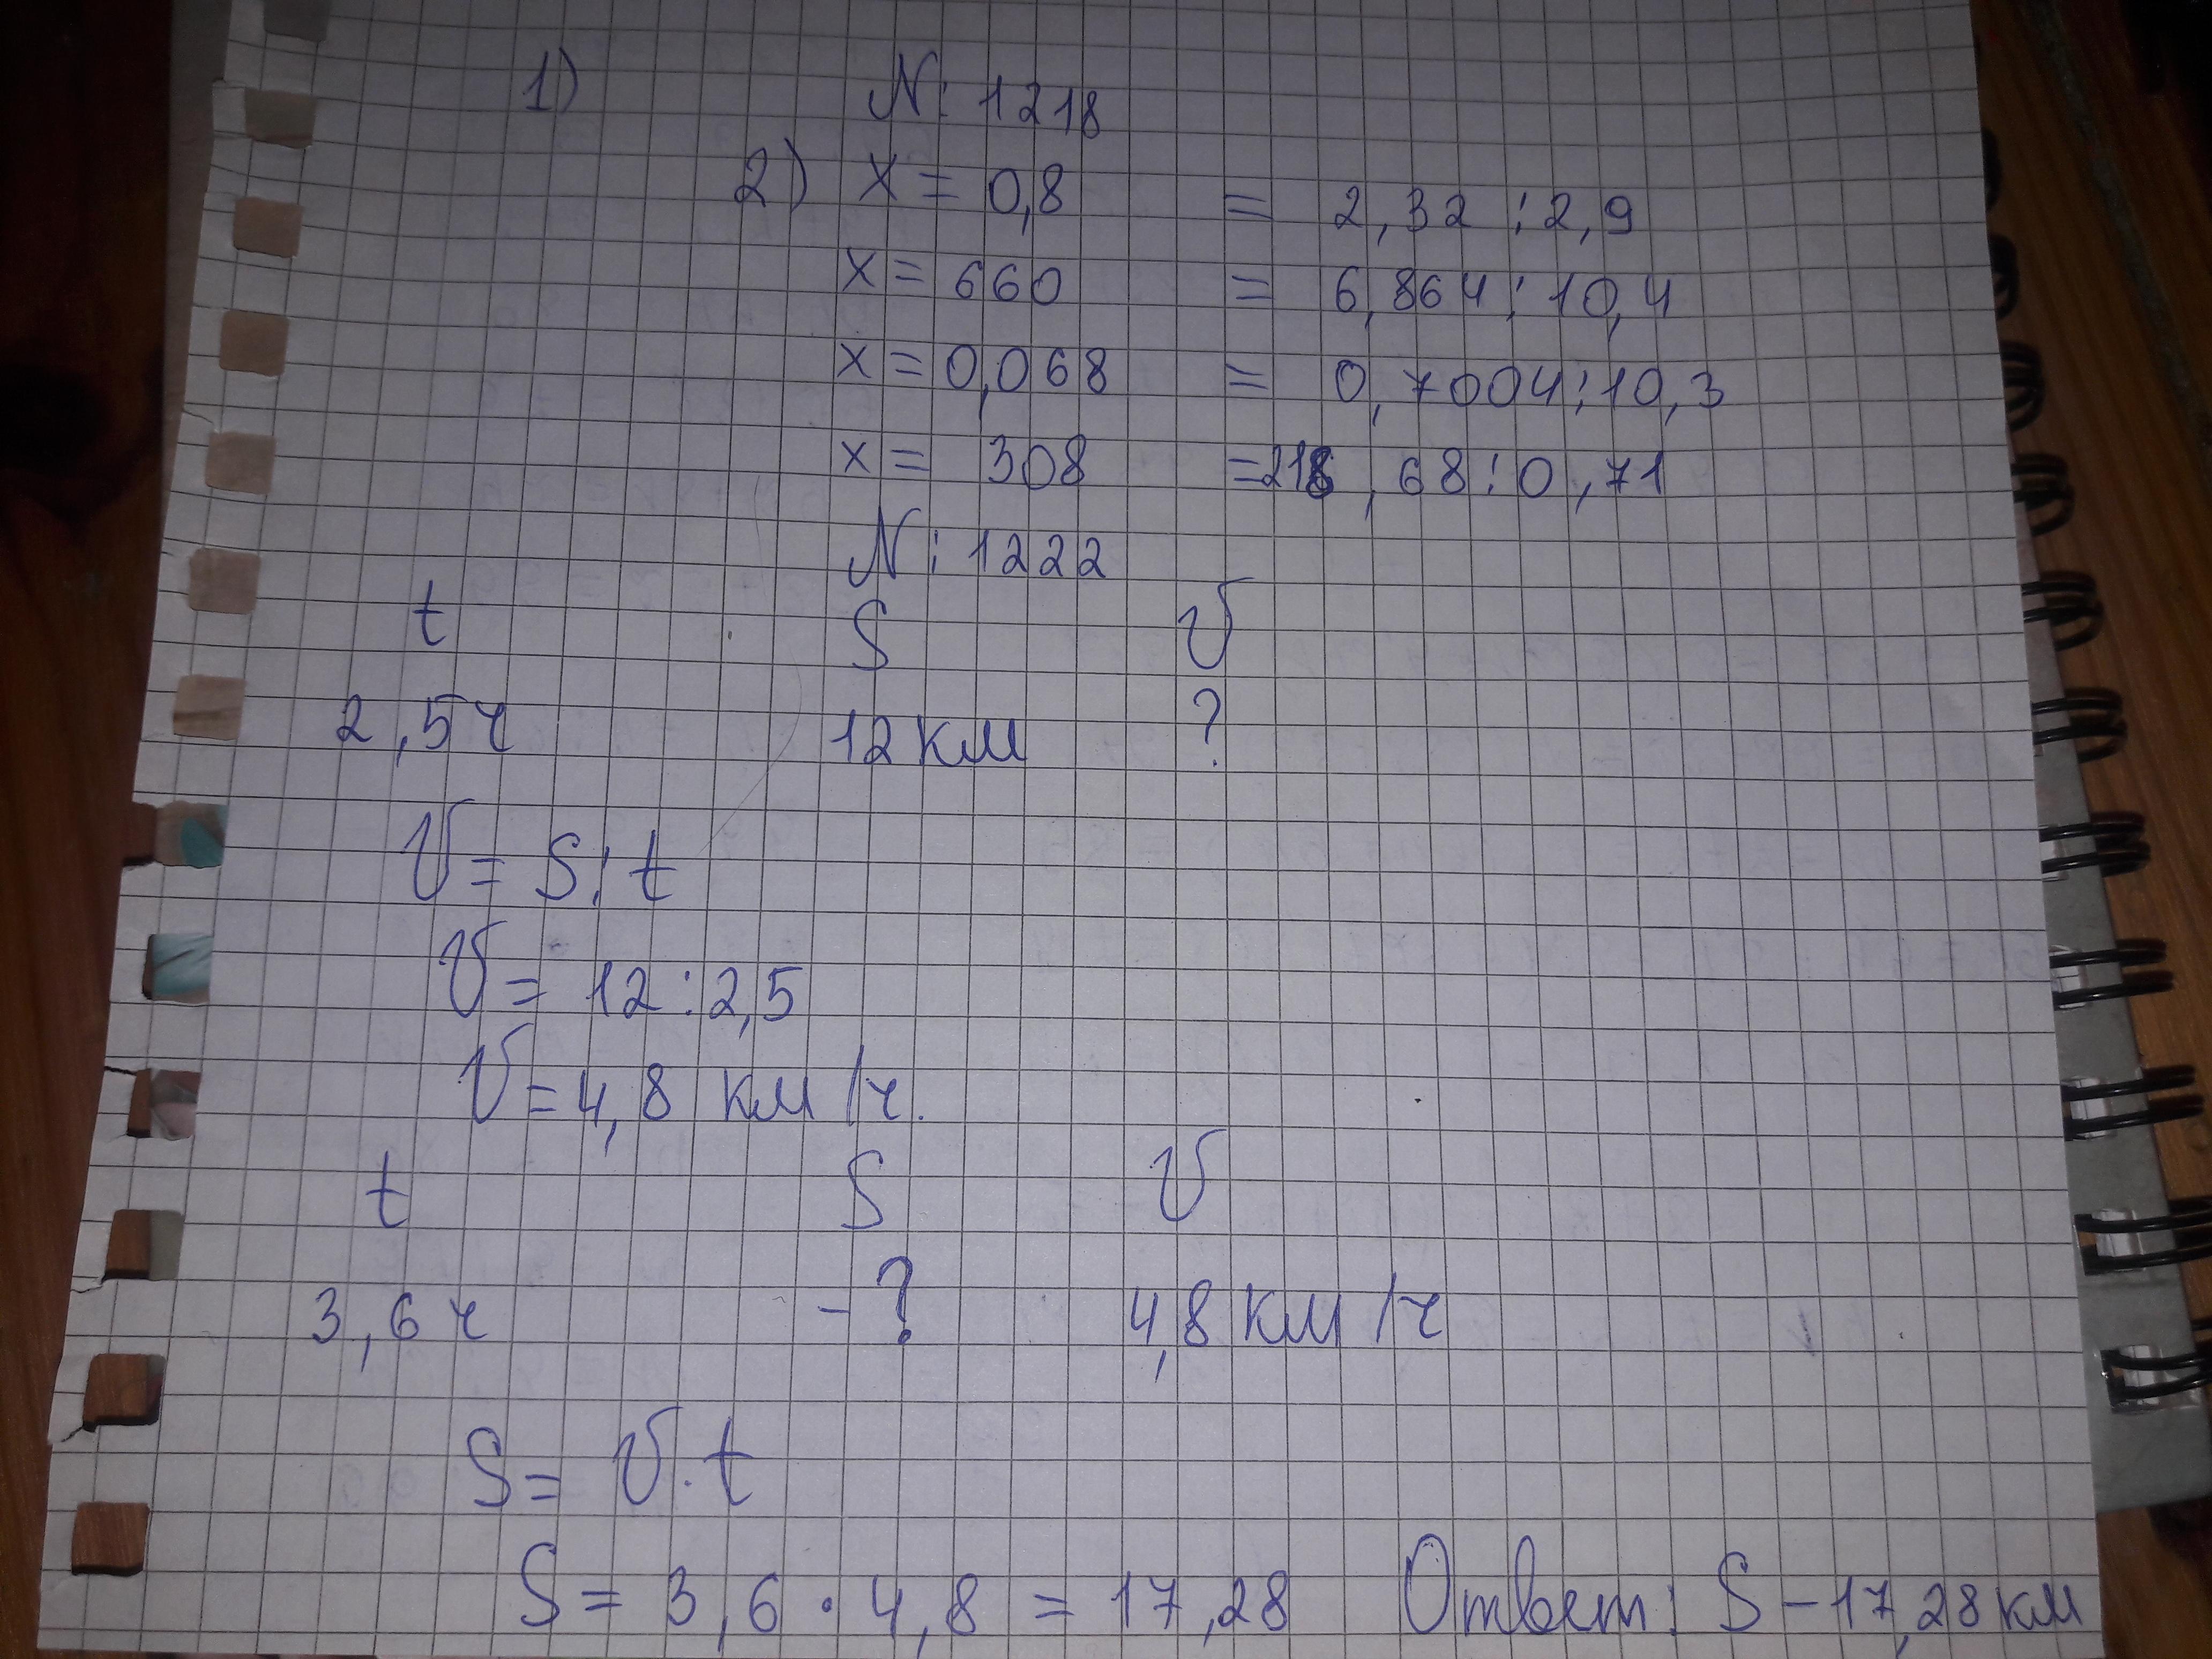 1) N: 1218
2) x = 0,8 = 2,32 : 2,9
x = 660 = 6,864 : 10,4
x = 0,068 = 0,7004 : 10,3
x = 308 = 218,68 : 0,71
N: 1222
t S V
2,5 ч 12 км ?
V = S : t
V = 12 : 2,5
V = 4,8 км/ч.
t S V
3,6 ч - ? 4,8 км/ч
S = V · t
S = 3,6 · 4,8 = 17,28 Ответ: S – 17,28 км